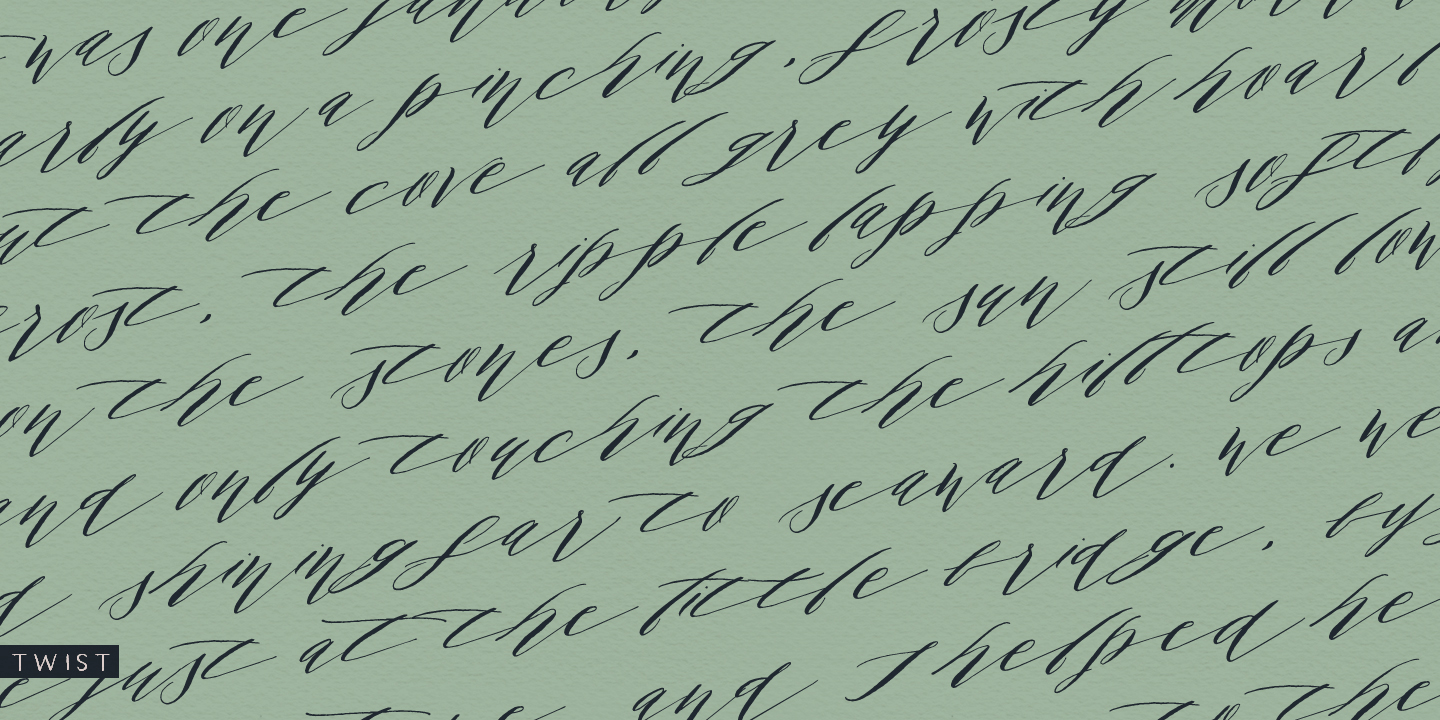 was one
arly on a pinching, frosty mor
ut the cove all grey with hoar f
rost, the ripple lapping softl
on the stones, the sun still low
and only touching the hilltops a
d shining far to seaward. we we
e just at the little bridge, by
and I helped he
to the
TWIST